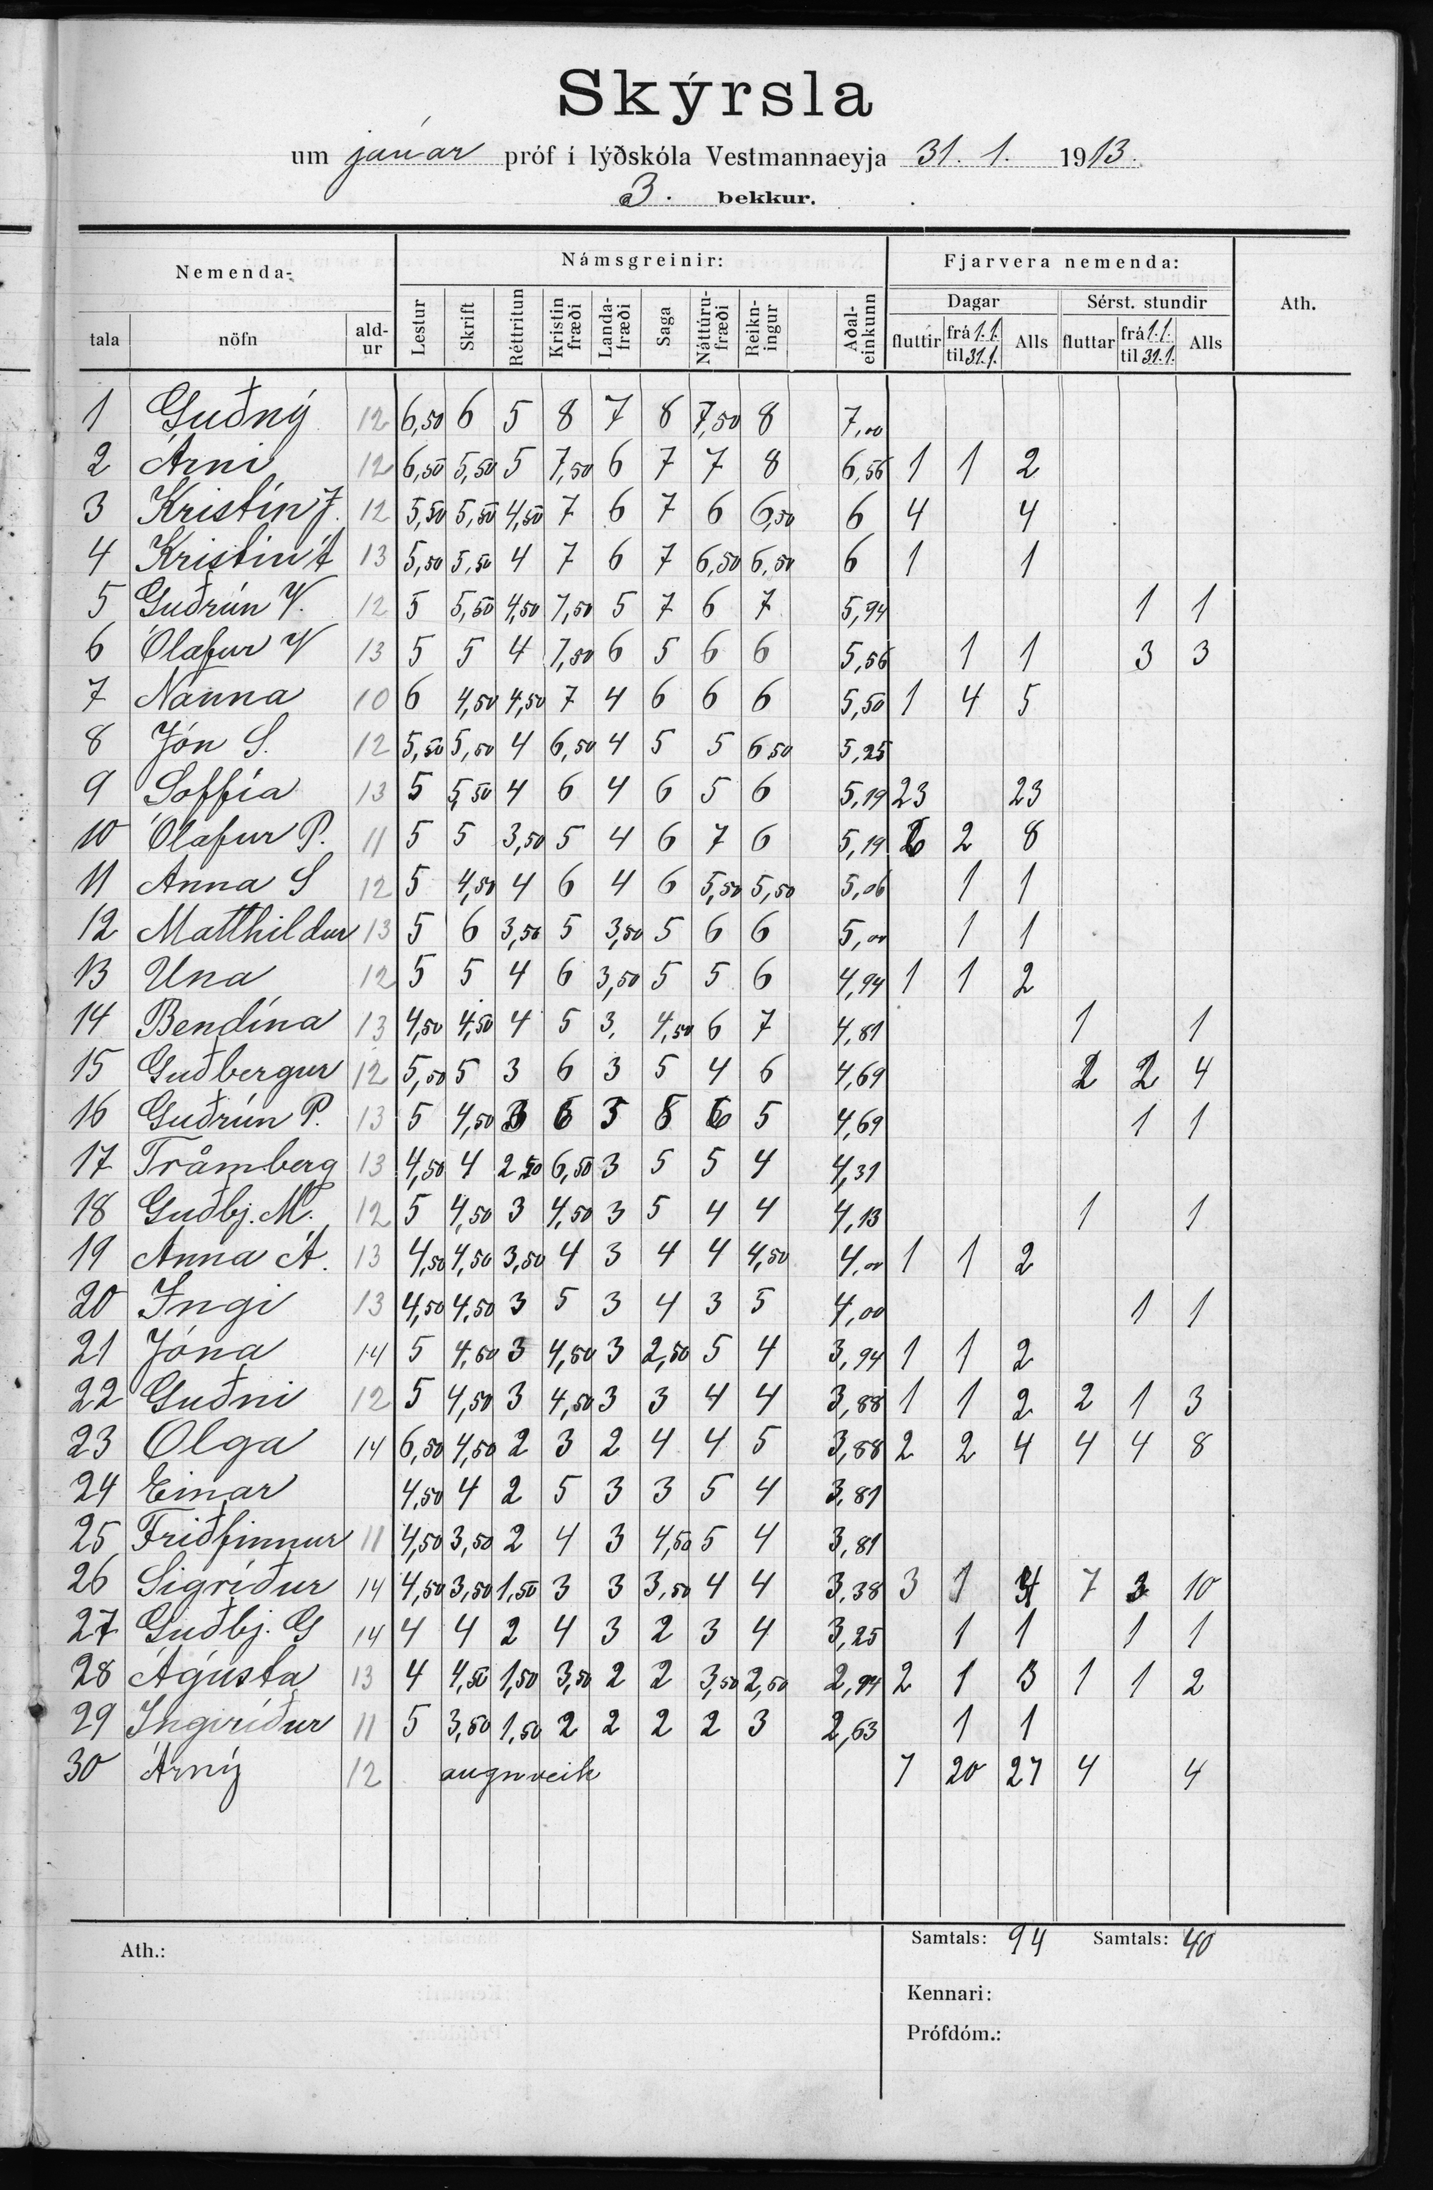 Skýrsla
um janúar próf í lýðskóla Vestmannaeyja 31. 1. 1913.
3. bekkur.
Nemenda- Námsgreinir: Fjarvera nemenda: Ath.
Dagar Sérst. stundir
tala nöfn ald-ur Lestur Skrift Réttritun Kristinfræði Landafræði Saga Náttúru-fræði Reikn-ingur Aðal-einkunn fluttir frá 1.1. til 31.1. Alls fluttar frá 1.1. til 31.1. Alls
1 Guðný 12 6,50 6 5 8 7 8 7,50 8 7,00
2 Árni 12 6,50 5,50 5 7,50 6 7 7 8 6,56 1 1 2
3 Kristín J. 12 5,50 5,50 4,50 7 6 7 6 6,50 6 4 4
4 Kristín Á 13 5,50 5,50 4 7 6 7 6,50 6,50 6 1 1
5 Guðrún V. 12 5 5,50 4,50 7,50 5 7 6 7 5,94 1 1
6 Ólafur V 13 5 5 4 7,50 6 5 6 6 5,56 1 1 3 3
7 Nanna 10 6 4,50 4,50 7 4 6 6 6 5,50 1 4 5
8 Jón S. 12 5,50 5,50 4 6,50 4 5 5 6,50 5,25
9 Soffía 13 5 5,50 4 6 4 6 5 6 5,19 23 23
10 Ólafur P. 11 5 5 3,50 5 4 6 7 6 5,19 6 2 8
11 Anna S 12 5 4,50 4 6 4 6 5,50 5,50 5,06 1 1
12 Matthildur 13 5 6 3,50 5 3,50 5 6 6 5,00 1 1
13 Una 12 5 5 4 6 3,50 5 5 6 4,94 1 1 2
14 Bendína 13 4,50 4,50 4 5 3, 4,50 6 7 4,81 1 1
15 Guðbergur 12 5,50 5 3 6 3 5 4 6 4,69 2 2 4
16 Guðrún P. 13 5 4,50 3 6 3 5 6 5 4,69 1 1
17 Tråmberg 13 4,50 4 2,50 6,50 3 5 5 4 4,31
18 Guðbj. M. 12 5 4,50 3 4,50 3 5 4 4 4,13 1 1
19 Anna Á. 13 4,50 4,50 3,50 4 3 4 4 4,50 4,00 1 1 2
20 Ingi 13 4,50 4,50 3 5 3 4 3 5 4,00 1 1
21 Jóna 14 5 4,50 3 4,50 3 2,50 5 4 3,94 1 1 2
22 Guðni 12 5 4,50 3 4,50 3 3 4 4 3,88 1 1 2 2 1 3
23 Olga 14 6,50 4,50 2 3 2 4 4 5 3,88 2 2 4 4 4 8
24 Einar 4,50 4 2 5 3 3 5 4 3,81
25 Friðfinnur 11 4,50 3,50 2 4 3 4,50 5 4 3,81
26 Sigríður 14 4,50 3,50 1,50 3 3 3,50 4 4 3,38 3 1 4 7 3 10
27 Guðbj. G 14 4 4 2 4 3 2 3 4 3,25 1 1 1 1
28 Ágústa 13 4 4,50 1,50 3,50 2 2 3,50 2,50 2,94 2 1 3 1 1 2
29 Ingiríður 11 5 3,50 1,50 2 2 2 2 3 2,63 1 1
30 Árný 12 augnveik 7 20 27 4 4
Ath.: Samtals: 94 Samtals: 40
Kennari:
Prófdóm.: